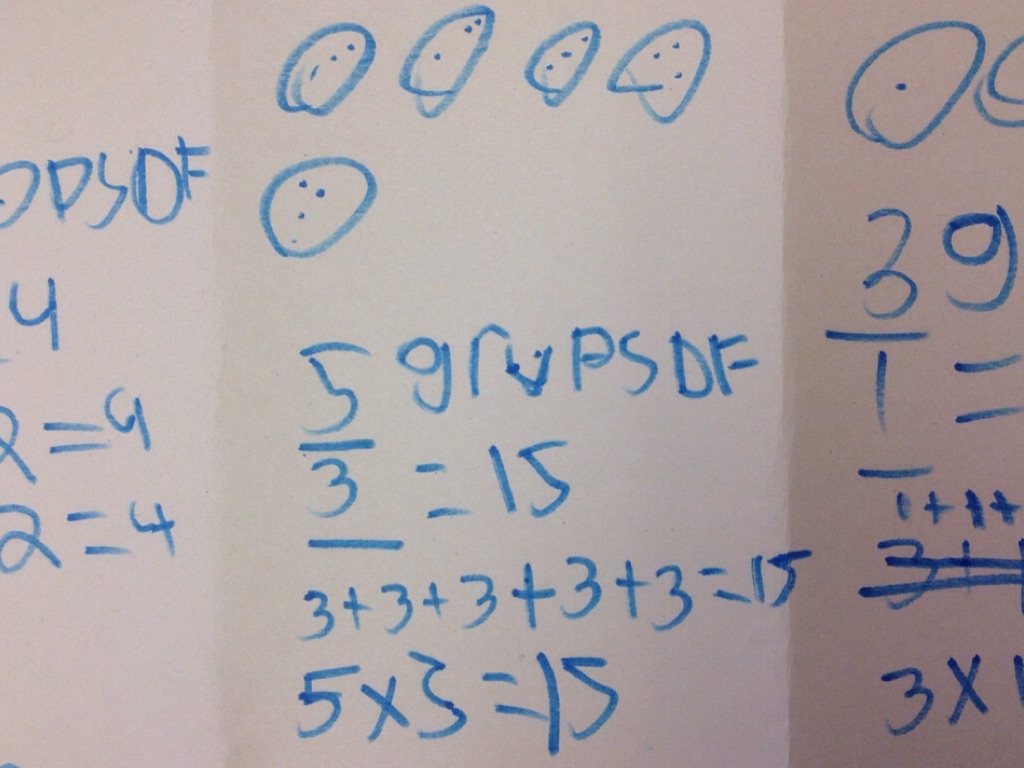 OPSOF
4
2=9
2=4
5 gruPSOF
3 = 15
3+3+3+3+3=15
5x3=15
3 g
1 =
1+1+
3x